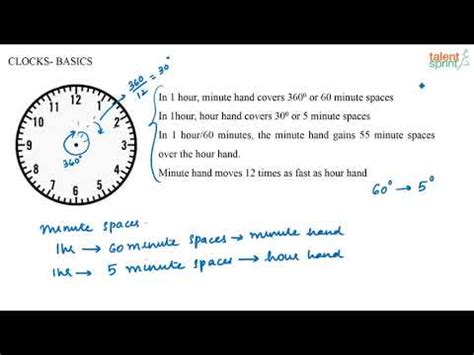 talent
sprint
CLOCKS- BASICS
360/12 = 30°
12
1
2
3
4
5
6
7
8
9
10
11
360°
In 1 hour, minute hand covers 360⁰ or 60 minute spaces
In 1hour, hour hand covers 30⁰ or 5 minute spaces
In 1 hour/60 minutes, the minute hand gains 55 minute spaces
over the hour hand.
Minute hand moves 12 times as fast as hour hand
60° → 5°
minute spaces
1hr → 60 minute spaces → minute hand
1hr → 5 minute spaces → hour hand